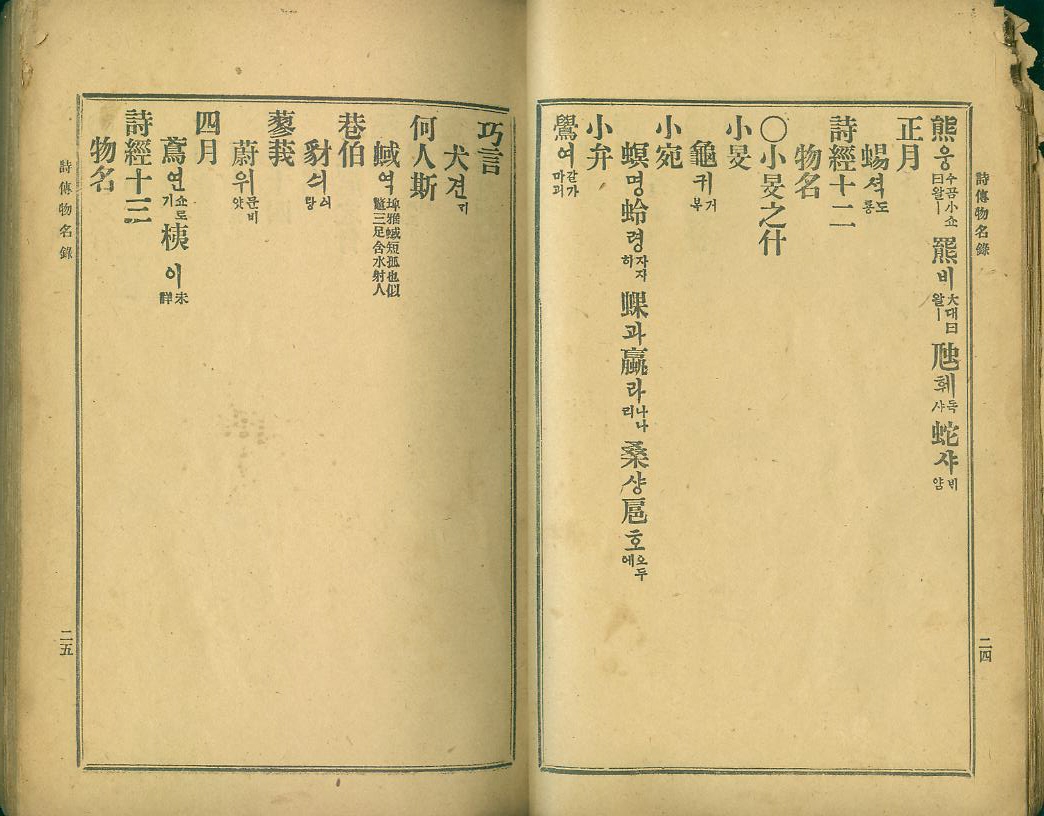 詩傳物名錄
二四
熊 웅 수곰小쇼曰왈ㅣ 羆 비 大대曰왈ㅣ 虺 훼 독샤 蛇 샤 비얌
正月
蜴 셕 도룡
詩經十二
物名
〇小旻之什
小旻
龜 귀 거북
小宛
螟 명 蛉 령 자자히 蜾 과 蠃 라 나나리 桑 상 扈 호 오두에
小弁
鸒 여 갈가마괴
巧言
犬 견 ᄀᆡ
何人斯
蜮 역 埤雅蜮短狐也似鼈三足含水射人
巷伯
豺 싀 랑
蓼莪
蔚 위 문비앗
四月
鳶 연 쇼로기 桋 이 未詳
詩經十三
物名
詩傳物名錄
二五